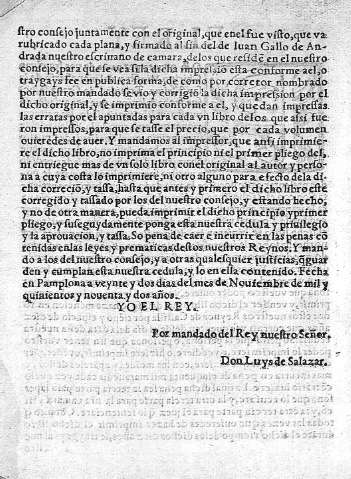 stro consejo juntamente con el original, que enel fue visto, que va
rubricado cada plana, y firmado al fin del de Iuan Gallo de An
drada nuestro escriuano de camara, delos que residē en el nuestro
consejo, para que se vea si la dicha impresiō esta conforme a el, o
traygays fee en publica forma, de como por corretor nombrado
por nuestro mandado se vio y corrigio la dicha impression por el
dicho original, y se imprimio conforme a el, y que dan impressas
las erratas por el apuntadas para cada vn libro delos que assi fue
ron impressos, para que se tasse el precio, que por cada volumen
ouieredes de auer. Y mandamos al impressor, que ansi imprimie
re el dicho libro, no imprima el principio ni el primer pliego del,
ni entriegue mas de vn solo libro conel original al autor y perso-
na a cuya costa lo imprimiere, ni otro alguno para efecto dela di
cha correciō, y tassa, hasta que antes y primero el dicho libro este
corregido y tassado por los del nuestro consejo, y estando hecho,
y no de otra manera, pueda imprimir el dicho principio y primer
pliego, y suseguydamente ponga esta nuestra cedula y priuilegio
y la aprouacion, y tassa. So pena de caer ē incurrir en las penas cō
tenidas en las leyes y prematicas destos nuestros Reynos. Y man-
do a los del nuestro consejo, y a otras qualesquier justicias, q̄ guar
den y cumplan esta nuestra cedula, y lo en ella contenido. Fecha
en Pamplona a veynte y dos dias del mes de Nouiembre de mil y
quinientos y nouenta y dos años.
YO EL REY.
Por mandado del Rey nuestro Señor.
Don Luys de Salazar.